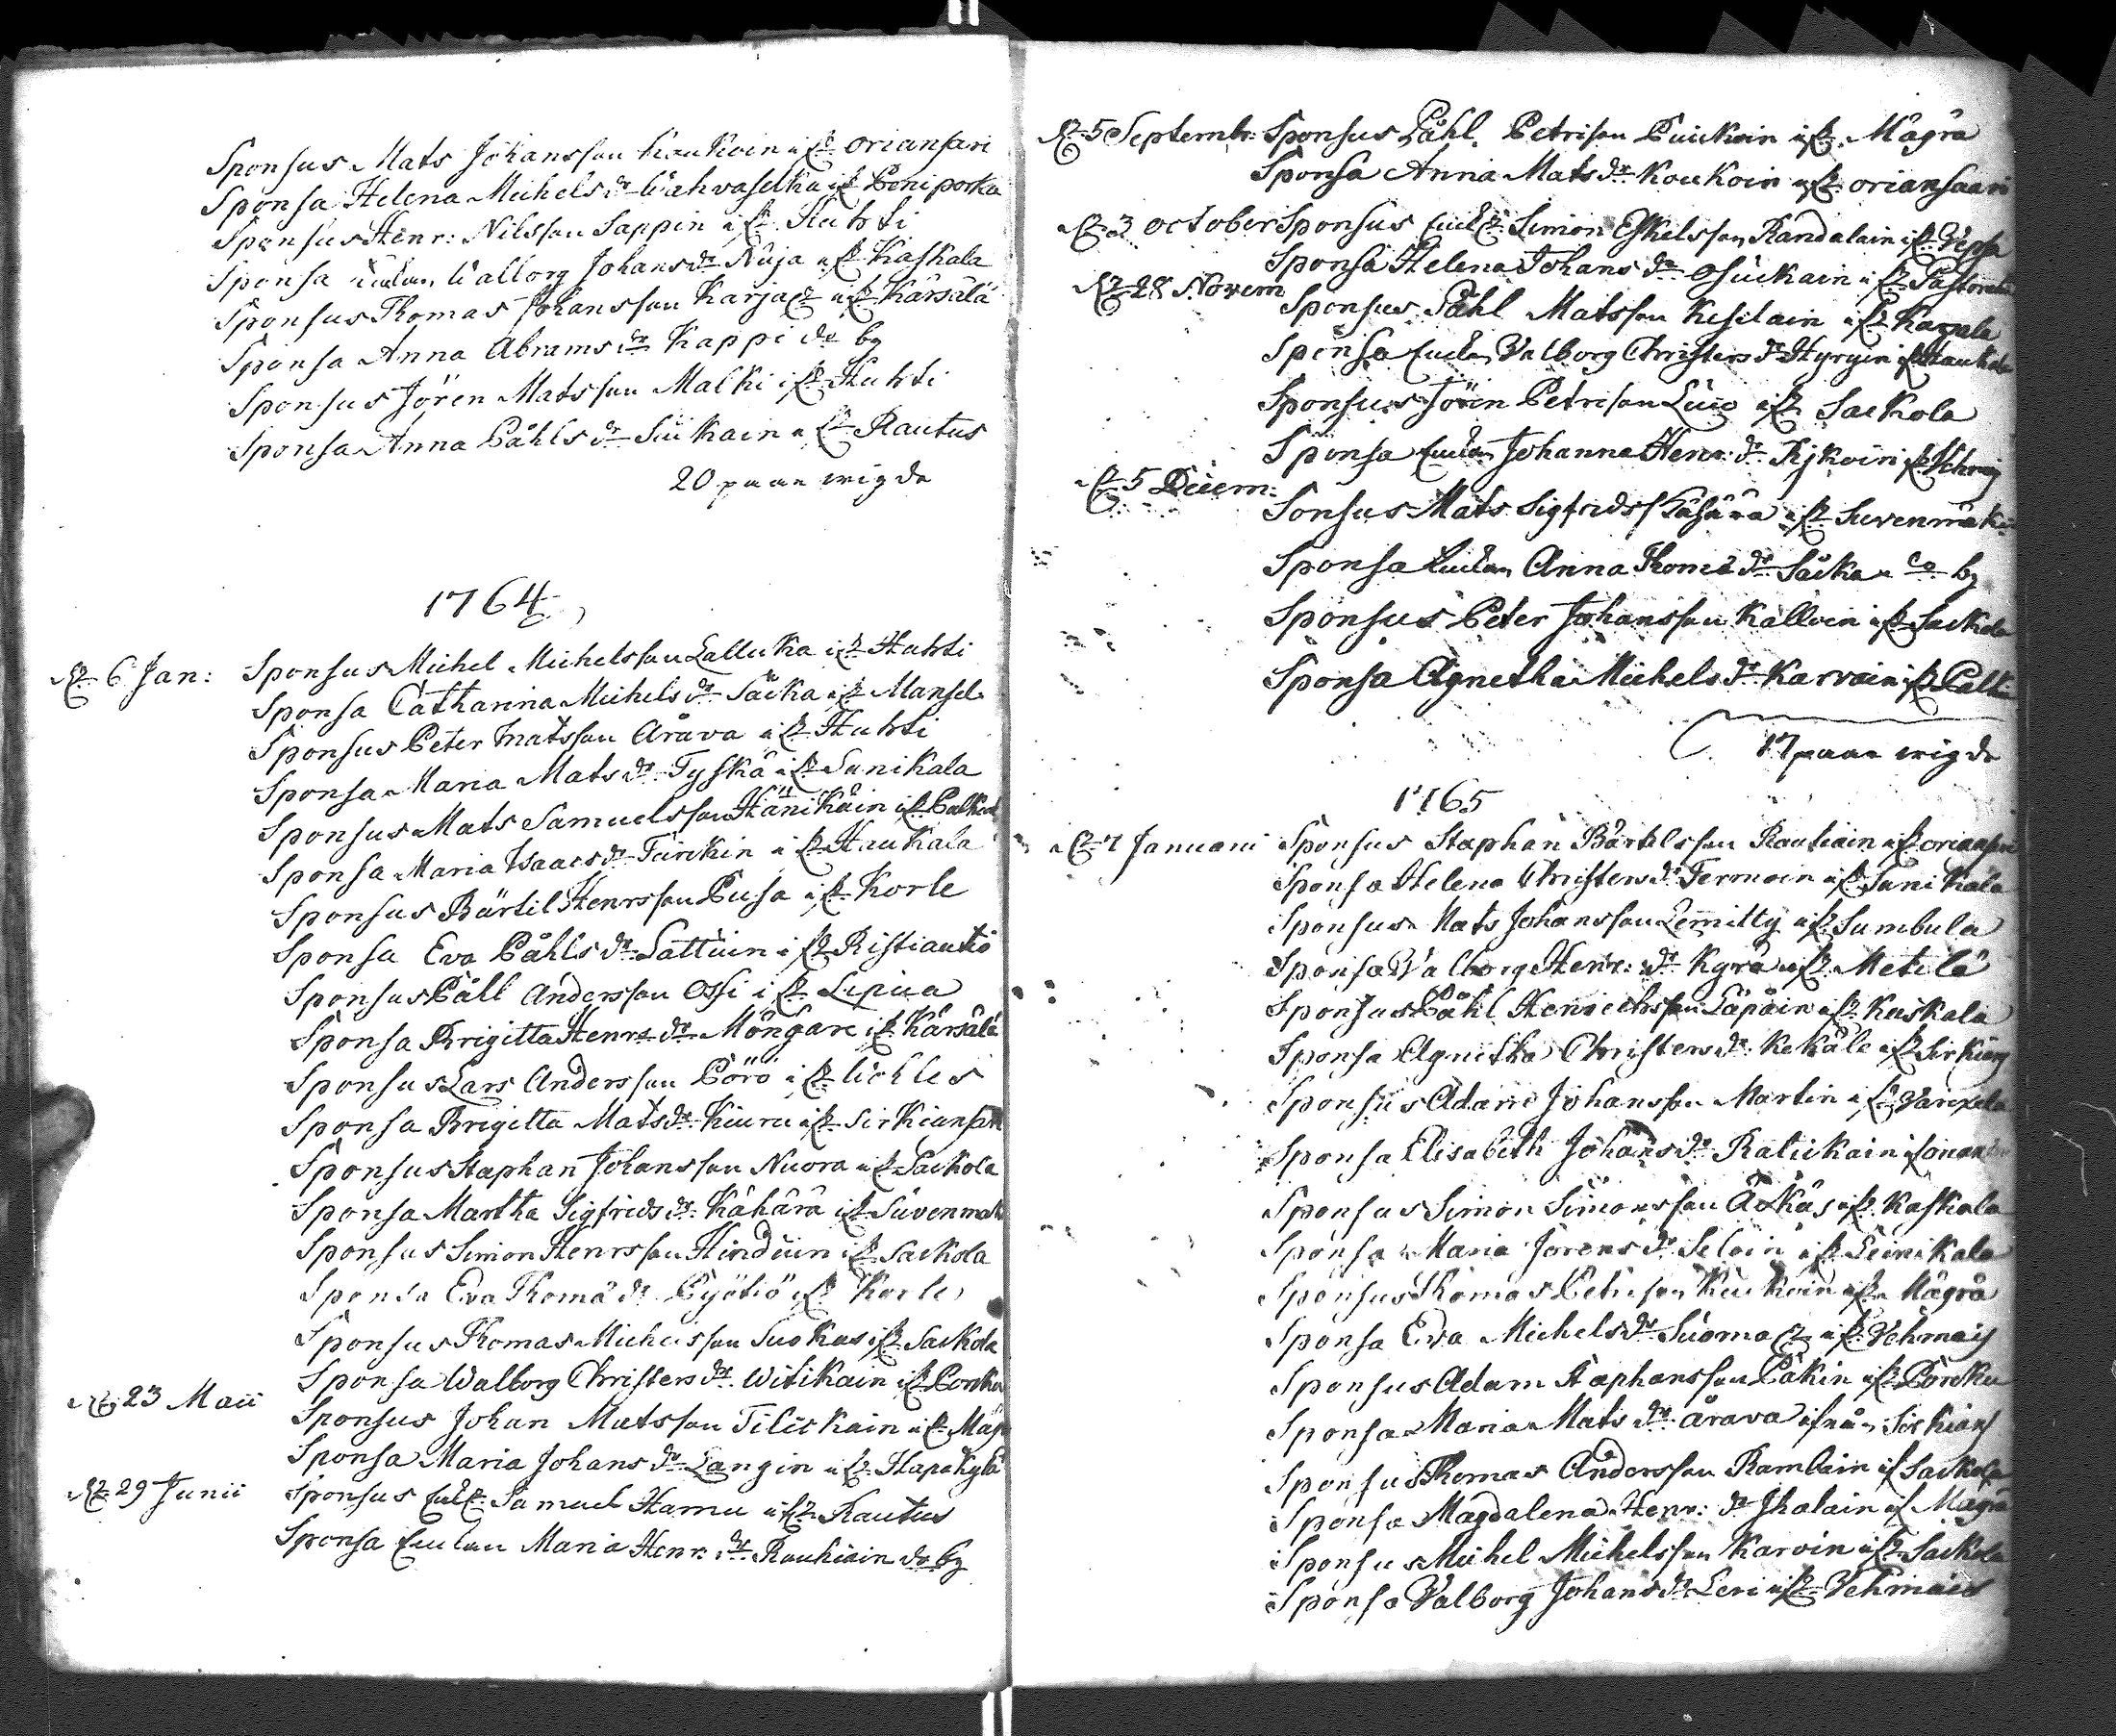 Sponsus Mats Johansson Koukoin i fr. Oriansari
Sponsa Helena Michels dr. Wahvaselka i fr. Poniporka
Sponsus Henr: Nilsson Sappin i fr. Huhti
Sponsa Walborg Johans dr. Nuija i fr. Kaskala
Sponsus Thomas Johansson Karja i fr. Kärsälä
Sponsa Anna Abrams dr. Kappi do by
Sponsus Jören Matsson Malki i fr. Huhti
Sponsa Anna Påhls dr. Suikain i fr. Rautus
20 paar wigde
1764
6 Jan: Sponsus Michel Michelsson Lallukka i fr. Huhti
Sponsa Catharina Michels dr. Säcka i fr. Mansel
Sponsus Peter Matsson Arava i fr. Huhti
Sponsa Maria Mats dr. Tyskä i fr. Sunikala
Sponsus Mats Samuelsson Hänikäin i fr.
Sponsa Maria Isaacs dr. Turckin i fr. Haukala
Sponsus Bärtil Henrsson Pusa i fr. Korle
Sponsa Eva Påhls dr. Lattuin i fr. Ristiautio
Sponsus Påll Andersson Ossi i fr. Lipiia
Sponsa Brigitta Henrs dr. Möngäre i fr. Kärsälä
Sponsus Lars Andersson Pörö i fr.
Sponsa Brigitta Mats dr. Kiuru i fr. Sirkiansari
Sponsus Staphan Johansson Nuora i fr. Sackola
Sponsa Martha Sigfrids dr. Kähärä i fr. Suvenmak
Sponsus Simon Henrsson Hinduin i fr. Sackola
Sponsa Eva Thomä dr. Pyötiö i fr. Korle
Sponsus Thomas Michelsson Suokas i fr. Sackola
Sponsa Walborg Christers dr. Witikain i fr. Porcku
23 Maii Sponsus Johan Matsson Tilickain i fr. Mäg
Sponsa Maria Johans dr. Langin i fr. Hapakylä
29 Junii Sponsus Samuel Hamu i fr. Rautus
Sponsa Maria Henr: dr. Rauhiain do by
5 Septembr: Sponsus Påhl Petrison Puickoin i fr. Mägrä
Sponsa Anna Mats dr. Koukoin i fr. Oriansaari
3 October Sponsus Simon Eskelsson Randalain i fr. Vepsa
Sponsa Helena Johans dr. Osuckain i fr.
28 Novem Sponsus Påhl Matsson Kesilain i fr.
Sponsa Valborg Christers dr. Hyryin i fr. Haukala
Sponsus Jörin Petrison Luio i fr. Sackola
Sponsa Johanna Henr: dr. Rijkoin i fr.
5 Decem: Sonsus Mats Sigfrids Kähärä i fr. Suvenmäki
Sponsa Anna Thomä dr. Säcka eo by
Sponsus Peter Johansson Källoin i fr. Sackola
Sponsa Agnetha Michels dr. Karvain i fr.
17 paar wigde
1765
7 Januarii Sponsus Staphan Bärtelsson Rautiain i fr. Oriansari
Sponsa Helena Christers dr. Termoin i fr. Sunikala
Sponsus Mats Johansson Lemitty i fr. Sumbula
Sponsa Valborg Henr: dr. Kyrö i fr. Metilä
Sponsus Påhl Henrichsson Läpäin i fr. Kaskala
Sponsa Agnetha Christers dr. Kekäle i fr. Sirkians
Sponsus Adam Johansson Martin i fr. Varixela
Sponsa Elisabeth Johans dr. Ratickain i fr.
Sponsus Simon Simonsson Äckäs i fr. Kaskala
Sponsa Maria Jörens dr. Seloin i fr. Leinikala
Sponsus Thomas Petrison Kuickoin i fr. Mägrä
Sponsa Eva Michels dr. Suoma i fr. Vehmais
Sponsus Adam Staphansson Päkin i fr. Porcku
Sponsa Maria Mats dr. Årava ifrån Sirkians
Sponsus Thomas Andersson Rambain if Sackola
Sponsa Magdalena Henr: dr. Ihalain if Mägrä
Sponsus Michel Michelsson Karvin i fr. Sackola
Sponsa Valborg Johans dr. Leri i fr. Vehmais